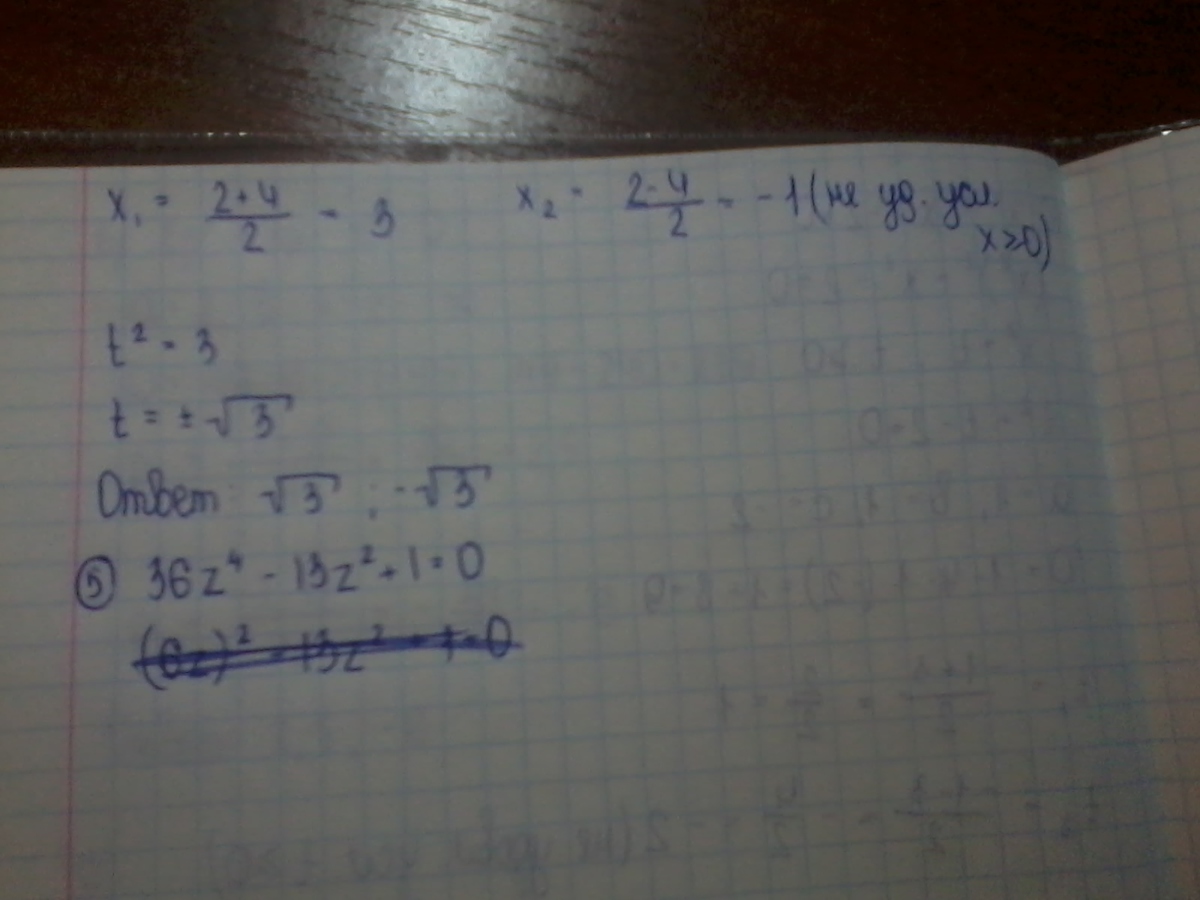 x₁ = (2+4)/2 = 3 x₂ = (2-4)/2 = -1 (не уд. усл.
x≥0)
t² = 3
t = ±√3
Ответ: √3 ; -√3
⑤ 36z⁴ - 13z² + 1 = 0
(6z)² - 13z² + 1 = 0